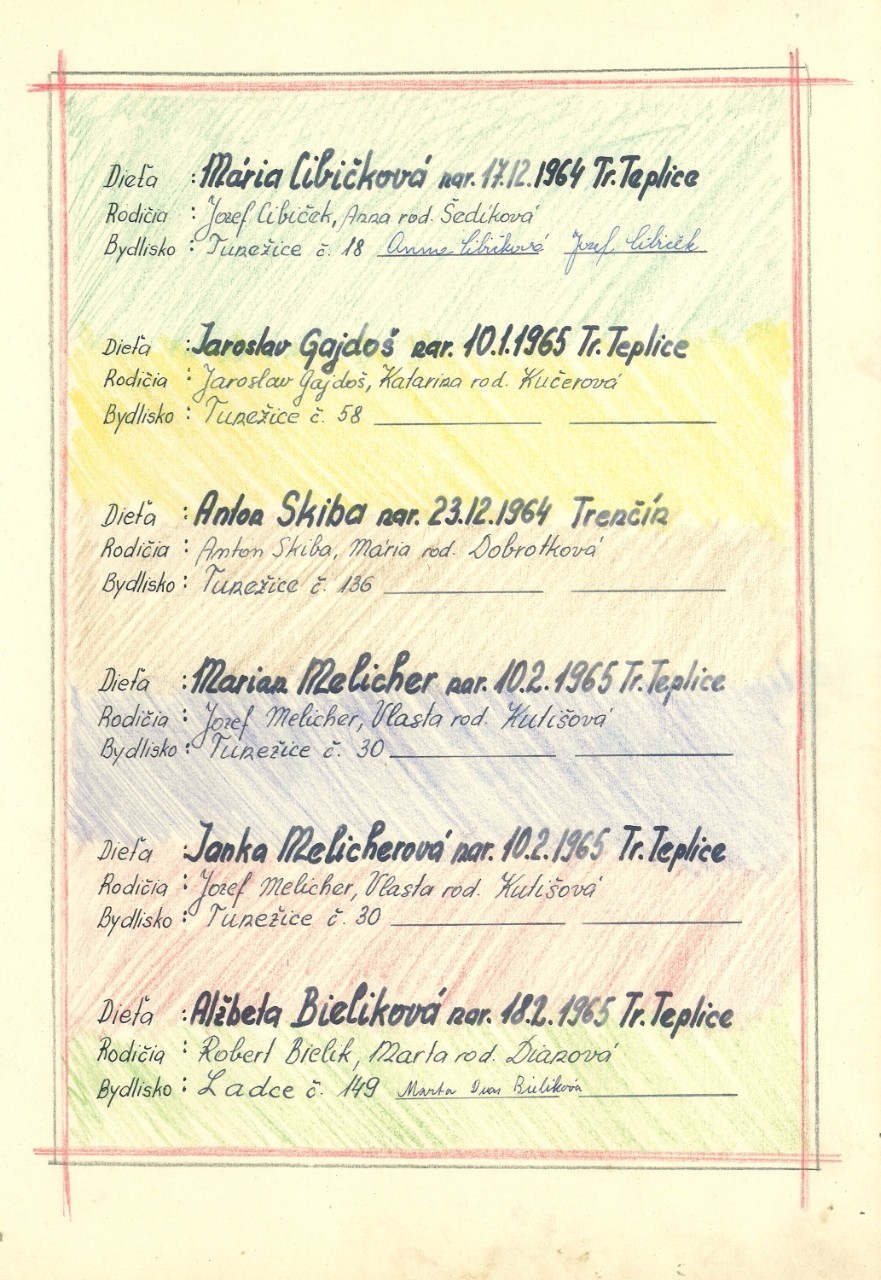 Dieťa : Mária Cibičková nar. 17.12.1964 Tr. Teplice
Rodičia : Jozef Cibiček, Anna rod. Šedíková
Bydlisko : Tunežice č. 18 Anna Cibičková Jozef Cibiček
Dieťa : Jaroslav Gajdoš nar. 10.1.1965 Tr. Teplice
Rodičia : Jaroslav Gajdoš, Katarina rod. Kučerová
Bydlisko : Tunežice č. 58
Dieťa : Anton Skiba nar. 23.12.1964 Trenčín
Rodičia : Anton Skiba, Mária rod. Dobrotková
Bydlisko : Tunežice č. 136
Dieťa : Marian Melicher nar. 10.2.1965 Tr. Teplice
Rodičia : Jozef Melicher, Vlasta rod. Kutišová
Bydlisko : Tunežice č. 30
Dieťa : Janka Melicherová nar. 10.2.1965 Tr. Teplice
Rodičia : Jozef Melicher, Vlasta rod. Kutišová
Bydlisko : Tunežice č. 30
Dieťa : Alžbeta Bieliková nar. 18.2.1965 Tr. Teplice
Rodičia : Robert Bielik, Marta rod. Dianová
Bydlisko : Ladce č. 149 Marta Bieliková